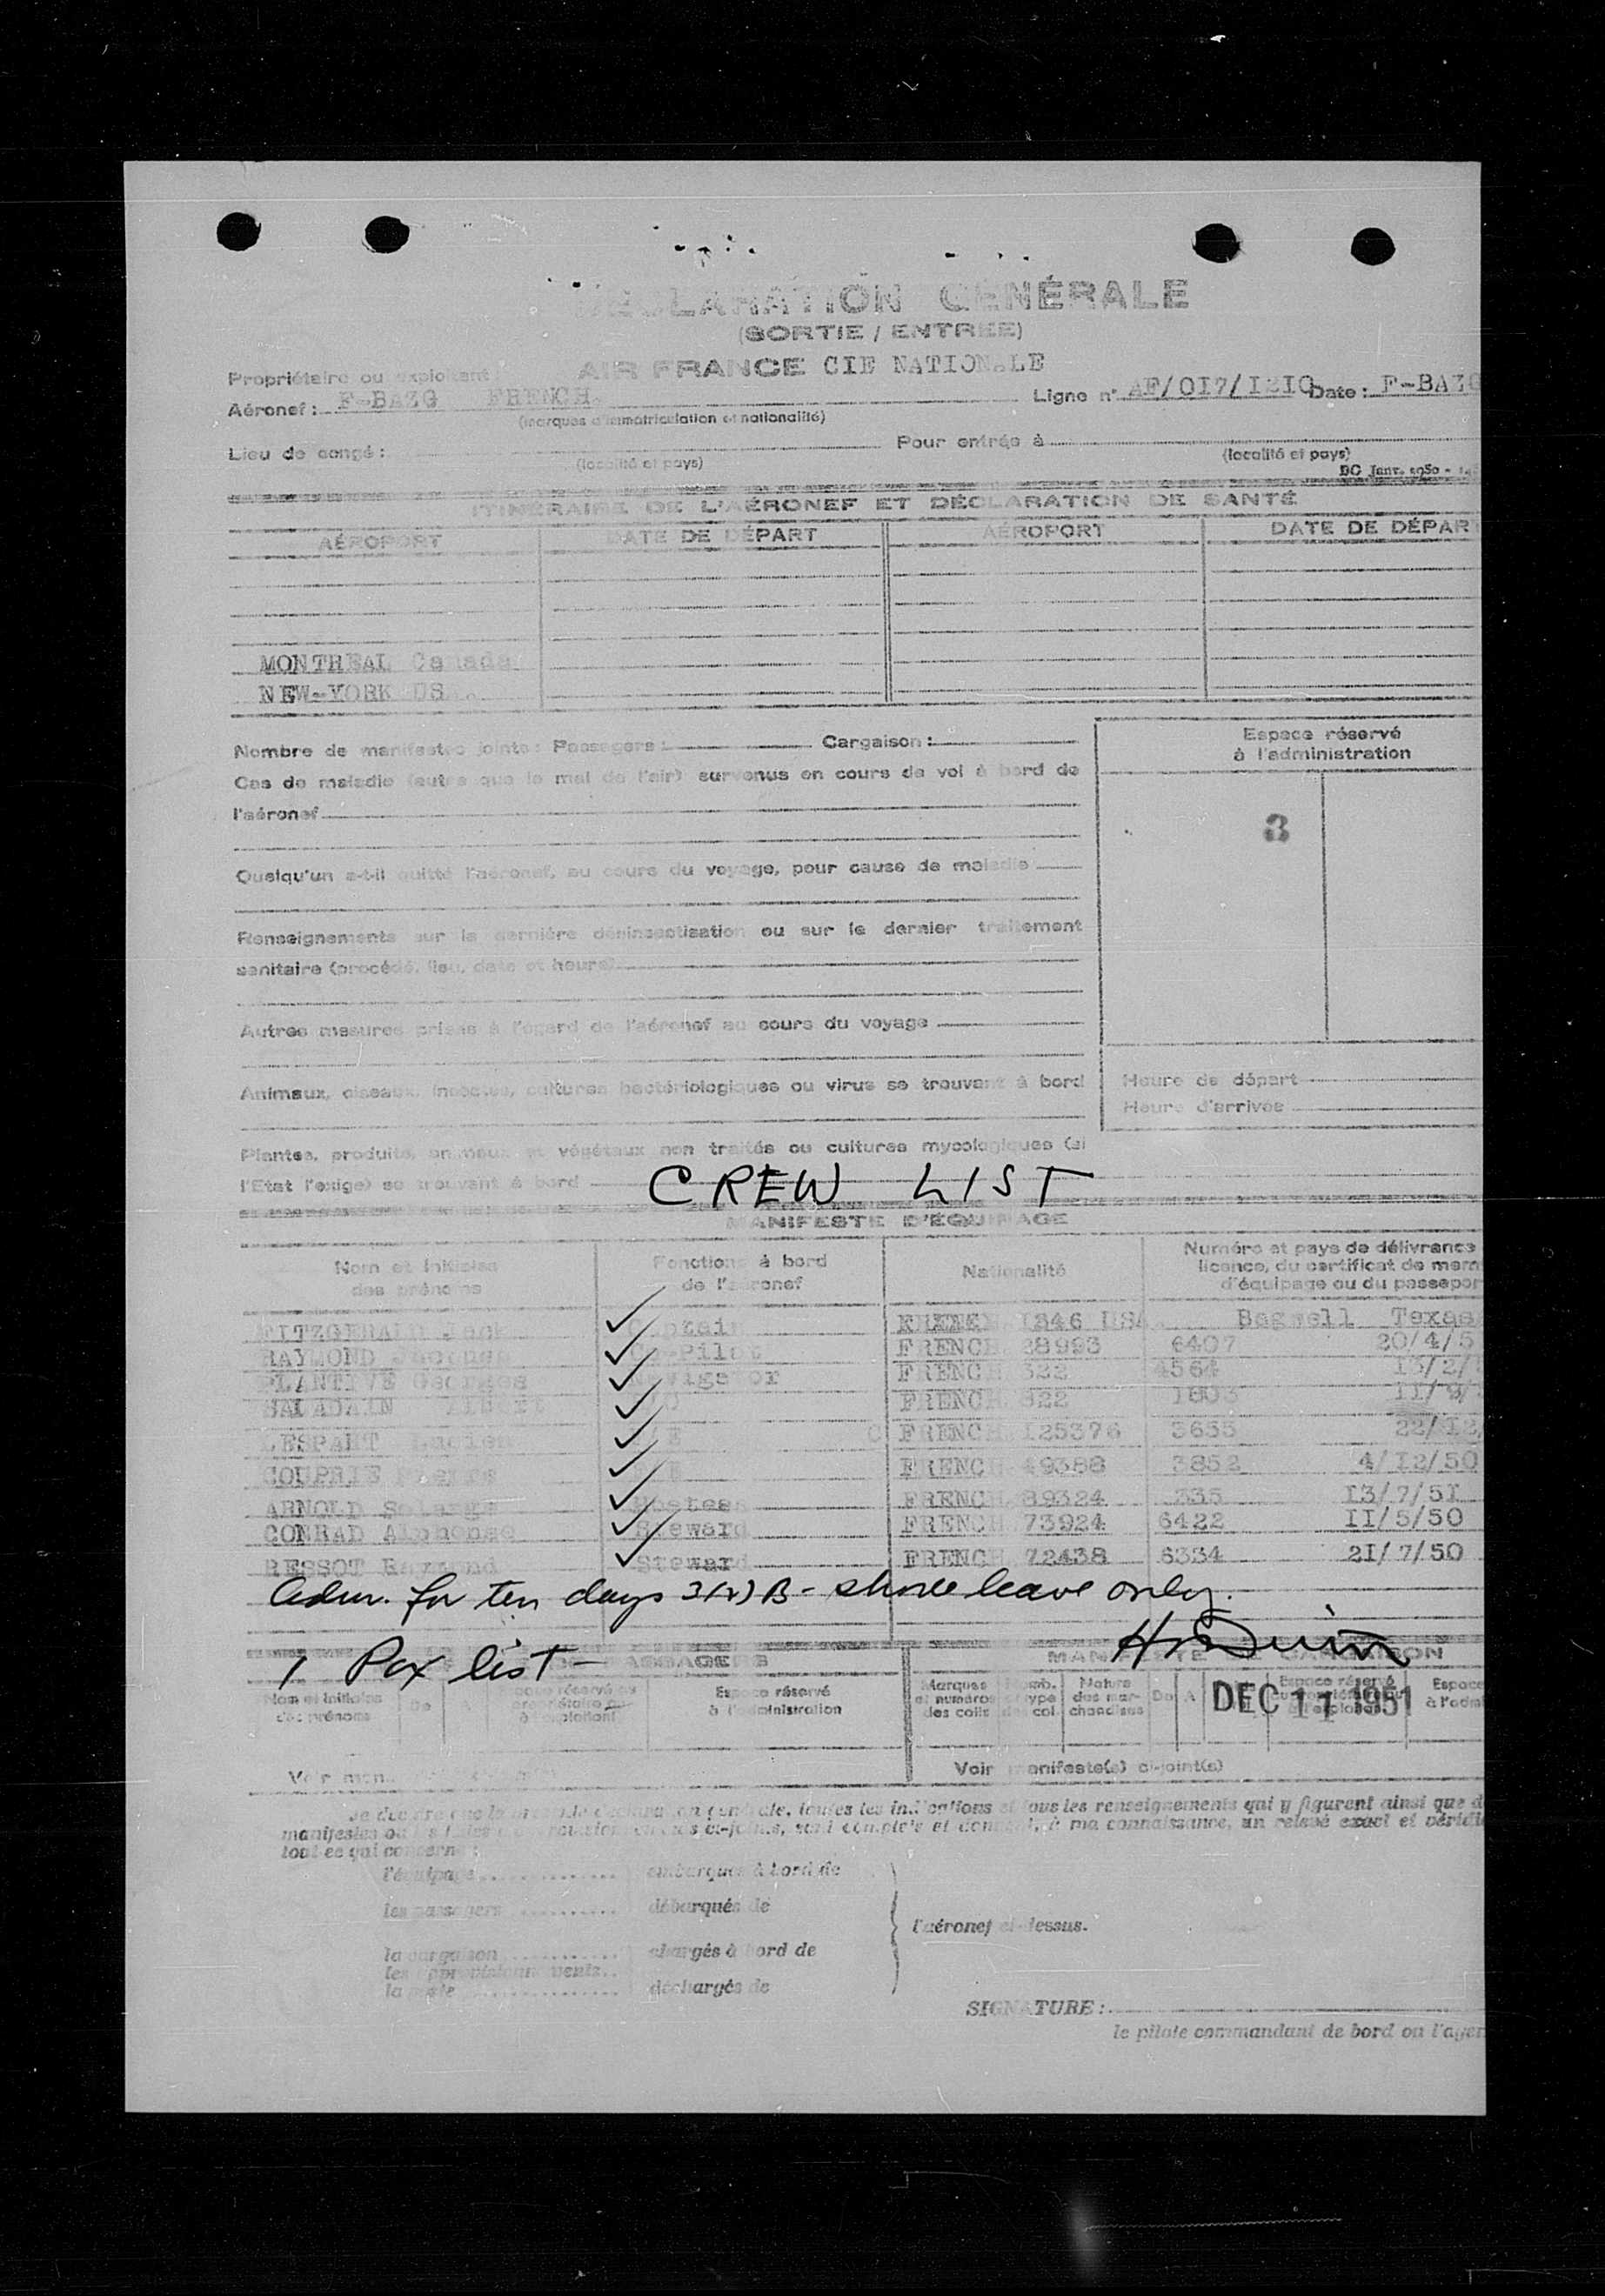 DÉCLARATION GÉNÉRALE
(SORTIE / ENTREE)
AIR FRANCE CIE NATIONALE
Propriétaire ou exploitant
Aéronef : F-BAZG FRENCH Ligne n° AF/017/1210 Date : F-BAZG
(marques d'immatriculation et nationalité)
Lieu de congé : Pour entrée à
(localité et pays) (localité et pays)
DC Janv. 1950 -
ITINÉRAIRE DE L'AÉRONEF ET DÉCLARATION DE SANTÉ
AÉROPORT DATE DE DÉPART AÉROPORT DATE DE DÉPAR
MONTREAL Canada
NEW-YORK US
Nombre de manifestes joints : Passagers : Cargaison :
Espace réservé
à l'administration
Cas de maladie (autre que le mal de l'air) survenus en cours de vol à bord de
l'aéronef
3
Quelqu'un a-t-il quitté l'aéronef, au cours du voyage, pour cause de maladie
Renseignements sur la dernière désinsectisation ou sur le dernier traitement
sanitaire (procédé, lieu, date et heure)
Autres mesures prises à l'égard de l'aéronef au cours du voyage
Animaux, oiseaux, insectes, cultures bactériologiques ou virus se trouvant à bord
Heure de départ
Heure d'arrivée
Plantes, produits animaux et végétaux non traités ou cultures mycologiques (si
l'Etat l'exige) se trouvant à bord
CREW LIST
MANIFESTE D'ÉQUIPAGE
Nom et initiales des prénoms
Fonctions à bord de l'aéronef
Nationalité
Numéro et pays de délivrance
licence, du certificat de mem
d'équipage ou du passepor
FITZGERALD Jack Captain 1846 USA Bagwell Texas
RAYMOND Jacques Co-Pilot FRENCH 28993 6407 20/4/5
PLANTIVE Georges Navigator FRENCH 322 4564 13/2/
SALADAIN Albert FRENCH 822 1803 11/9/
LESPART Lucien FRENCH 125376 3655 22/12/
COUPRIE Pierre FRENCH 49388 3852 4/12/50
ARNOLD Solange Hostess FRENCH 89324 335 13/7/51
CONRAD Alphonse Steward FRENCH 73924 6422 11/5/50
RESSOT Raymond Steward FRENCH 72438 6334 21/7/50
Adm. for ten days 3(5) B - shore leave only.
1 Pax list -
PASSAGERS
MANIFESTE CARGAISON
Nom et initiales des prénoms De A
Espace réservé au propriétaire ou à l'exploitant
Espace réservé à l'administration
Marques et numéros des colis
Nomb. type col
Nature des marchandises De A
DEC 11 1951
Espace à l'adm
Voir manifeste(s) ci-joint(s)
Je déclare que la présente déclaration générale, toutes les indications et tous les renseignements qui y figurent ainsi que d
ma connaissance, un relevé exact et véridi
tout ce qui concerne :
l'équipage embarqués à bord de
les passagers débarqués de
l'aéronef ci-dessus.
la cargaison chargés à bord de
les approvisionnements
la poste déchargés de
SIGNATURE :
le pilote commandant de bord ou l'agen